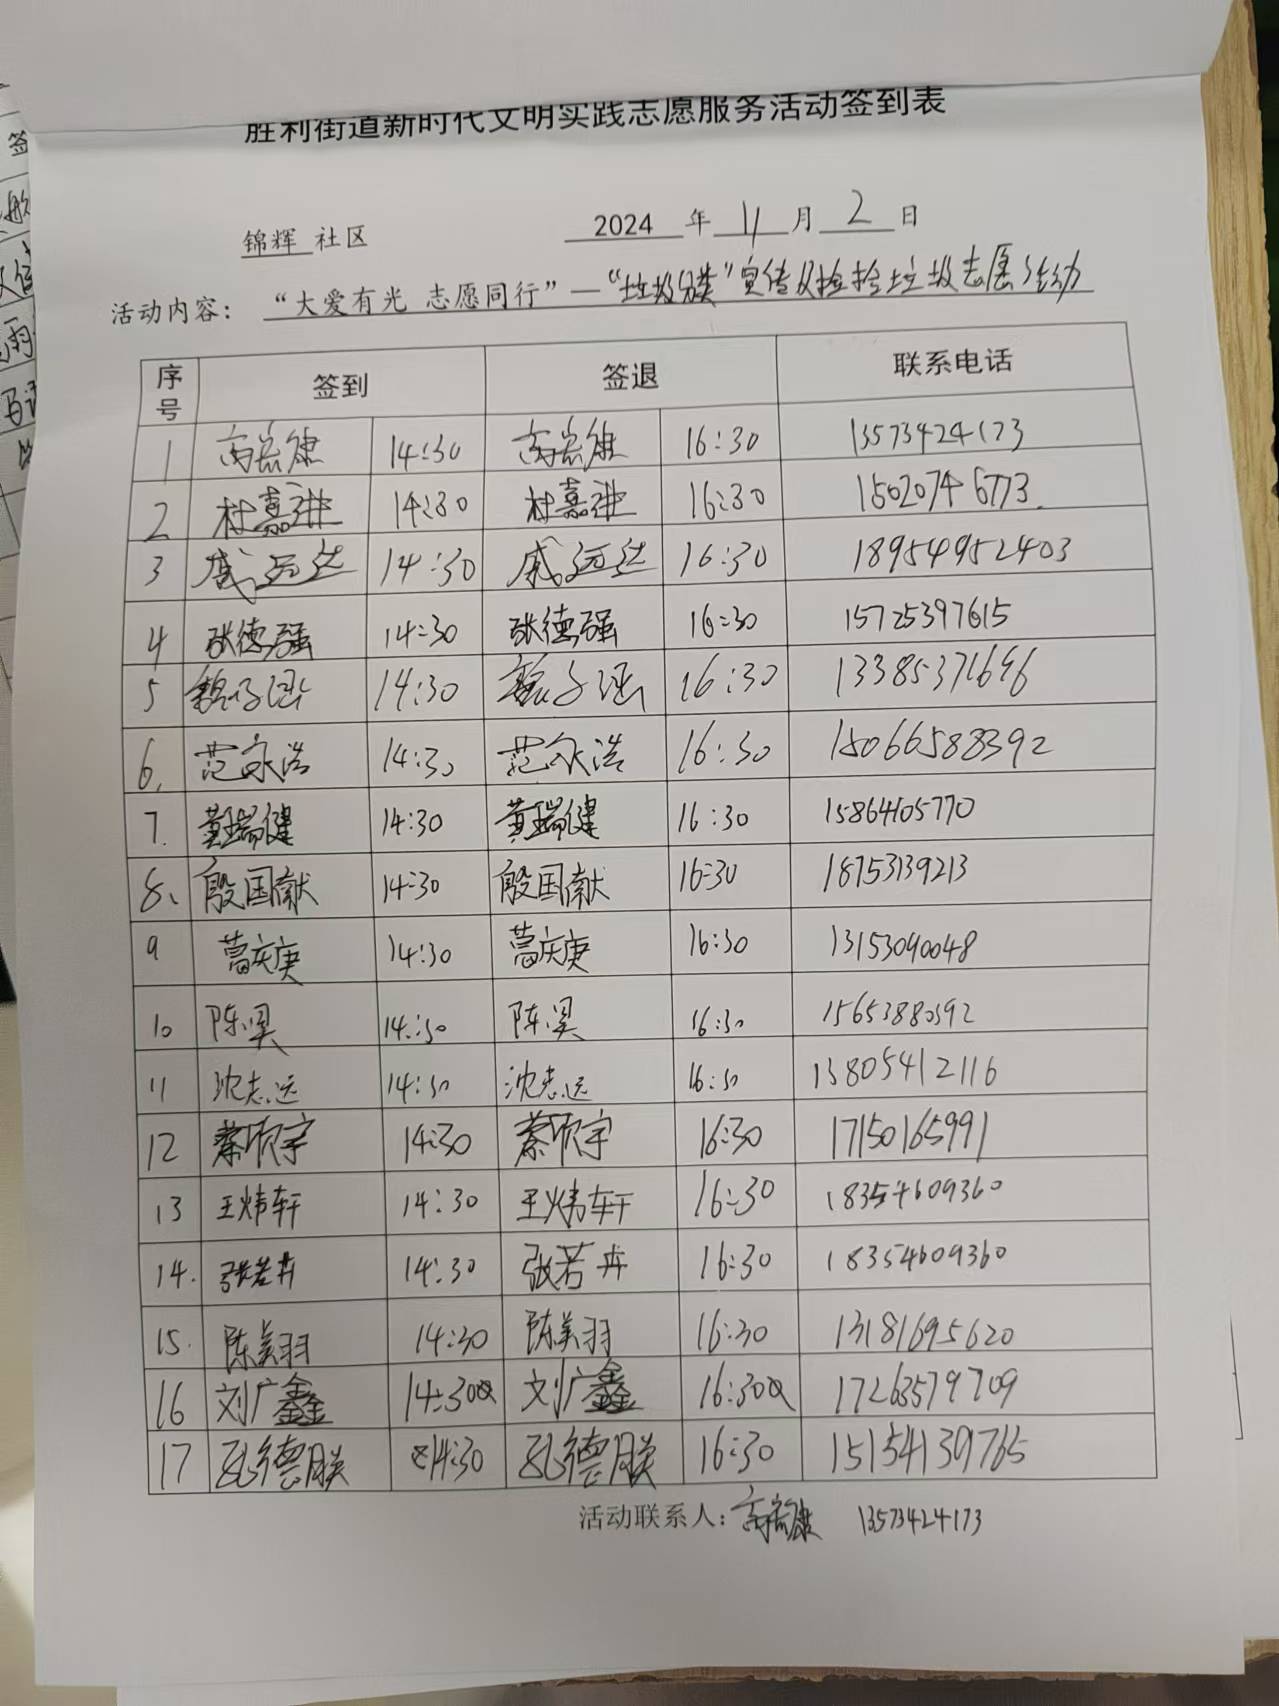 胜利街道新时代文明实践志愿服务活动签到表
锦辉 社区 2024 年 11 月 2 日
活动内容： “大爱有光 志愿同行”—“垃圾分类”宣传及捡拾垃圾志愿活动
序号 签到 签退 联系电话
1 14:30 16:30 13573424173
2 杜嘉进 14:30 杜嘉进 16:30 15020746773
3 戚远达 14:30 戚远达 16:30 18954952403
4 张德强 14:30 张德强 16:30 15725397615
5 魏子涵 14:30 魏子涵 16:30
6. 范家浩 14:30 范家浩 16:30 15066588392
7. 黄瑞健 14:30 黄瑞健 16:30 15864105770
8、 殷国献 14:30 殷国献 16:30 18753139213
9 葛庆庚 14:30 葛庆庚 16:30 13153090048
10 陈昊 14:30 陈昊 16:30 15653880392
11 沈志远 14:30 沈志远 16:30 13805412116
12 蔡欣宇 14:30 蔡欣宇 16:30 17150165991
13 王炜轩 14:30 王炜轩 16:30 18354609360
14. 张若卉 14:30 张若卉 16:30 18354609360
15. 陈美羽 14:30 陈美羽 16:30 13181695620
16 刘广鑫 14:30 刘广鑫 16:30 17263579709
17 孔德朕 14:30 孔德朕 16:30 15154139765
活动联系人： 13573424173